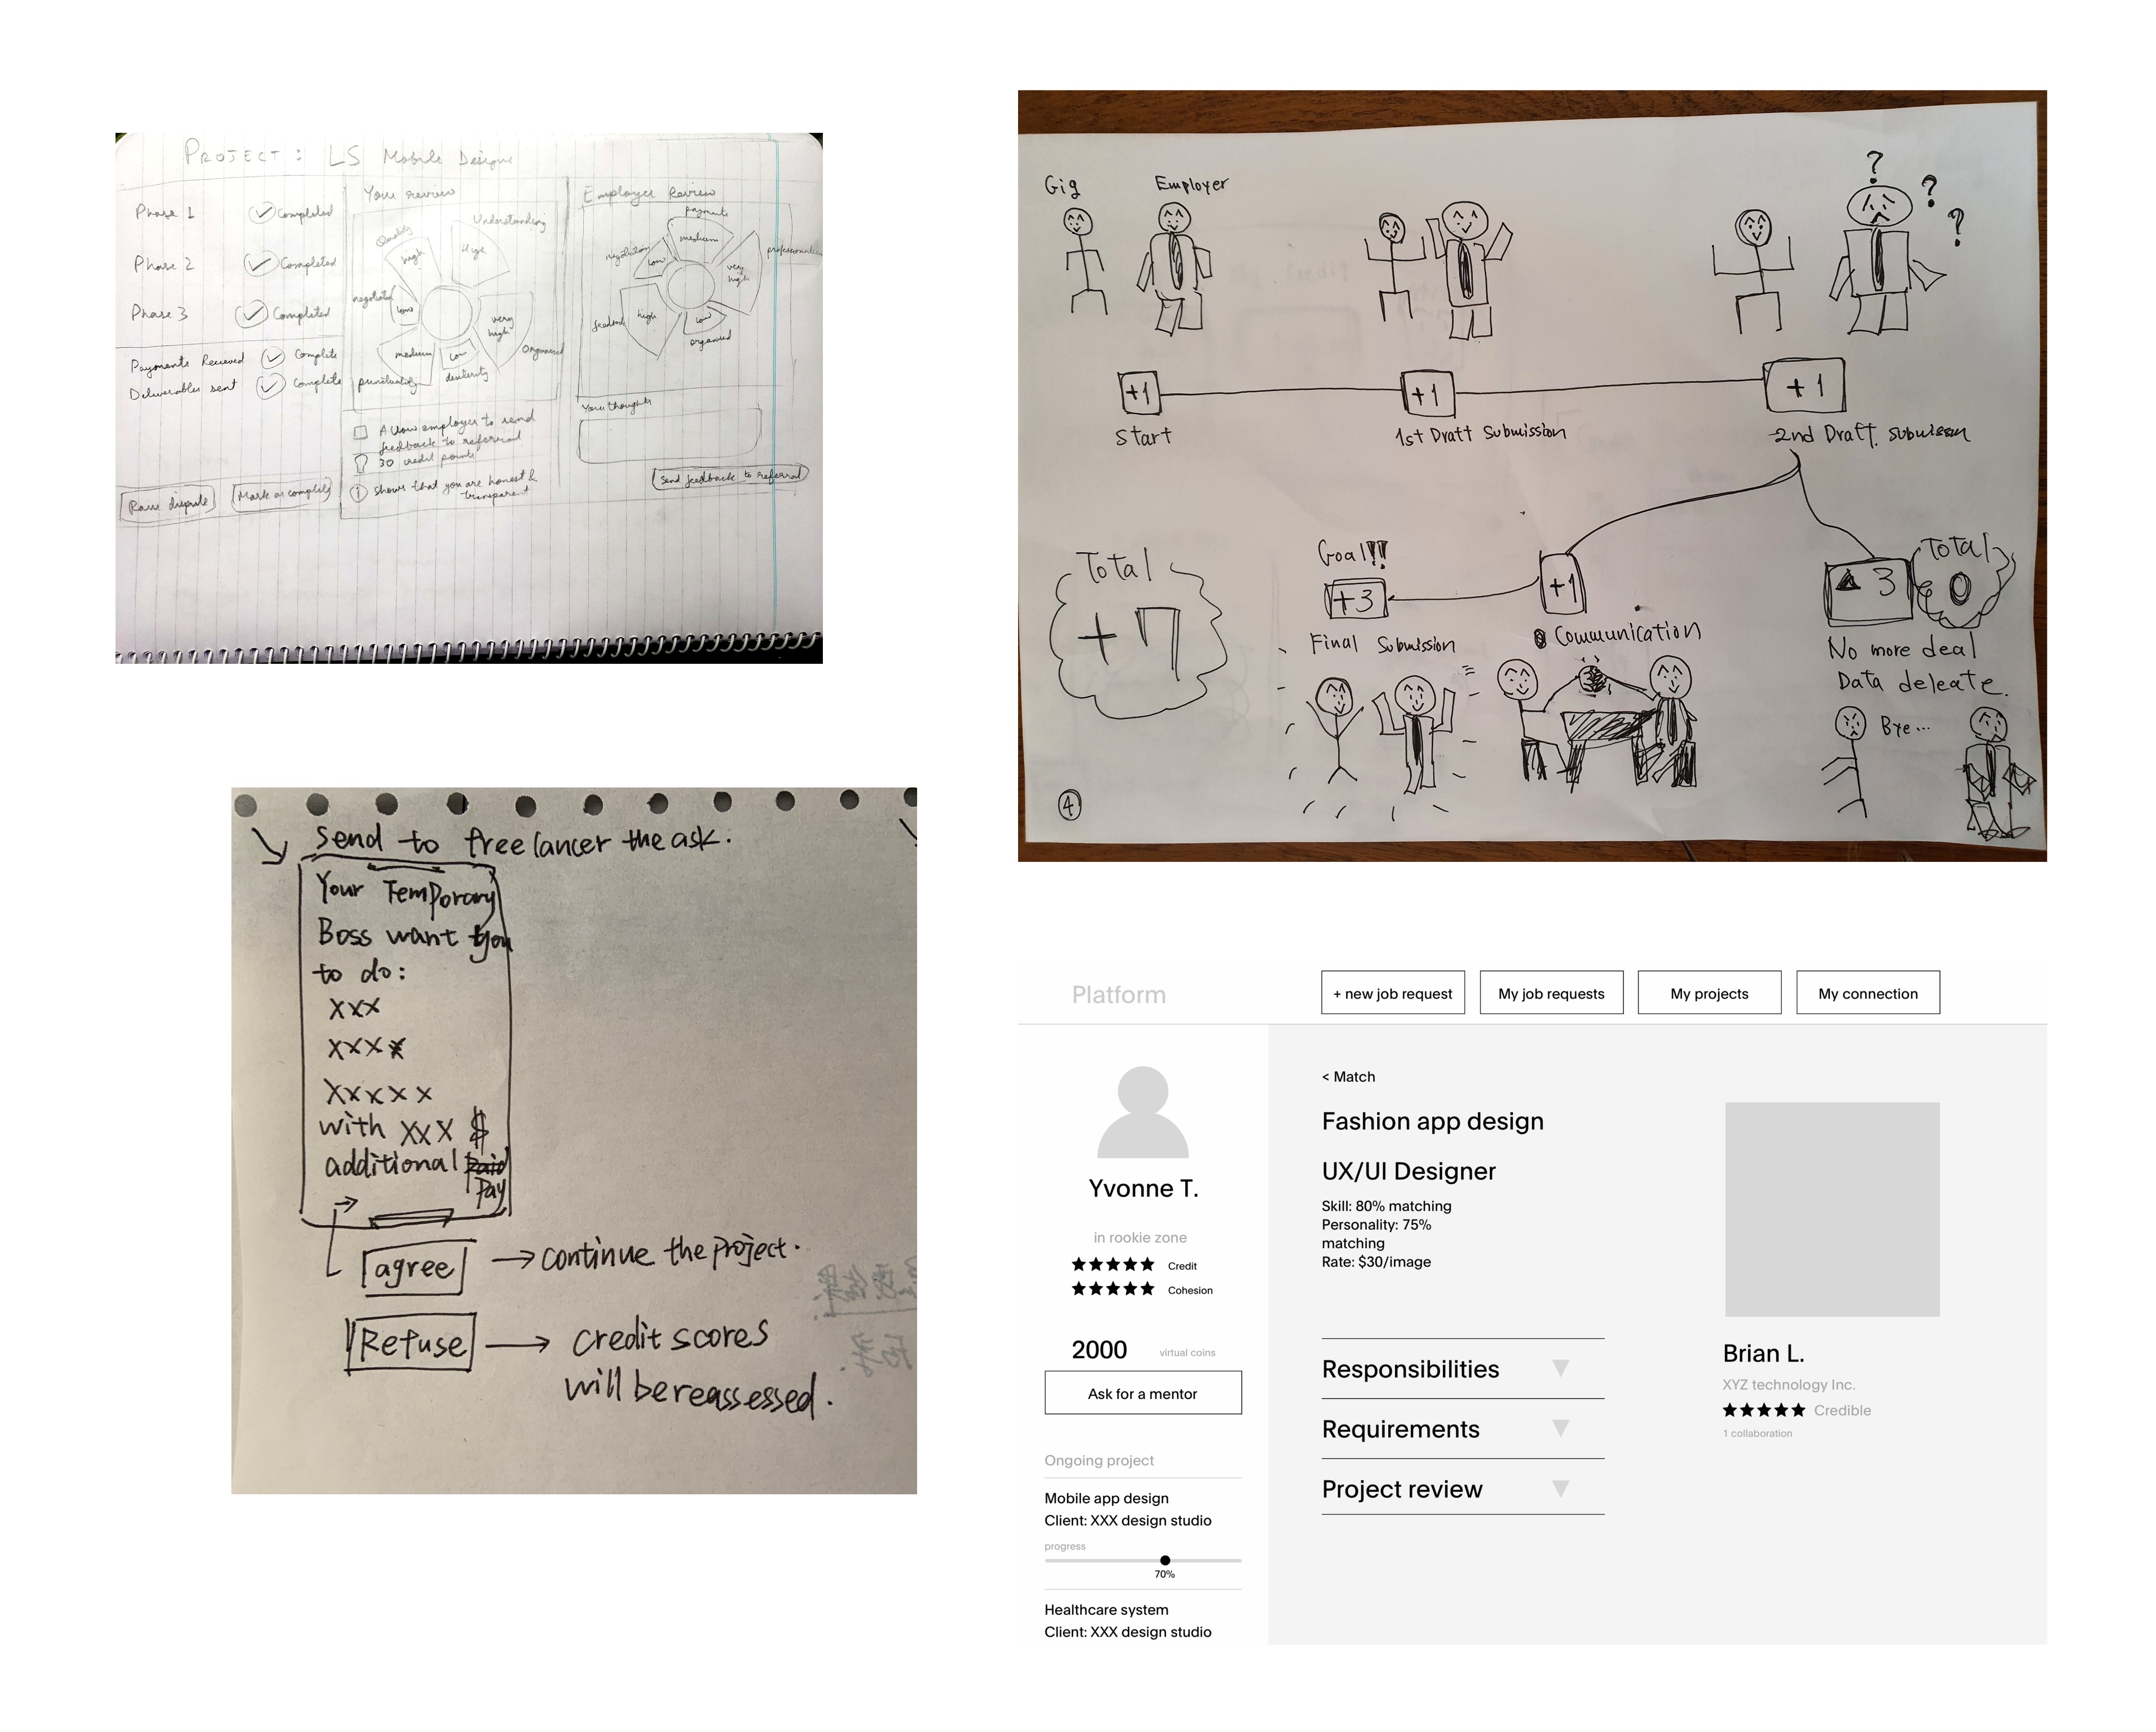 PROJECT: LS Mobile Designs
Phase 1 Completed
Phase 2 Completed
Phase 3 Completed
Payments Recieved Complete
Deliverables sent Complete
Raise dispute
Mark as complete
Your review
Quality
high
Understanding
High
negotiated
low
very high
Organised
medium
punctuality
low
dexterity
Allow employer to send
feedback to referral
30 credit points
shows that you are honest &
transparent
Employer Review
payments
medium
negotiation
low
very high
feedback
high
low
organised
Your thoughts
Send feedback to referral
Gig
Employer
? ? ?
+1
+1
+1
Start
1st Dratt Submission
2nd Dratt. submission
Total
+7
Goal!!
+3
Final Submission
+1
Communication
▲ 3
Total
0
No more deal
Data deleate.
Bye...
4
Send to freelancer the ask.
Your Temporary
Boss want you
to do:
xxx
xxx
xxxxx
with xxx $
additional
Pay
agree → continue the project.
Refuse → credit scores
will be reassessed.
Platform
+ new job request
My job requests
My projects
My connection
Yvonne T.
in rookie zone
★★★★★ Credit
★★★★★ Cohesion
2000 virtual coins
Ask for a mentor
Ongoing project
Mobile app design
Client: XXX design studio
progress
70%
Healthcare system
Client: XXX design studio
< Match
Fashion app design
UX/UI Designer
Skill: 80% matching
Personality: 75%
matching
Rate: $30/image
Responsibilities
Requirements
Project review
Brian L.
XYZ technology Inc.
★★★★★ Credible
1 collaboration